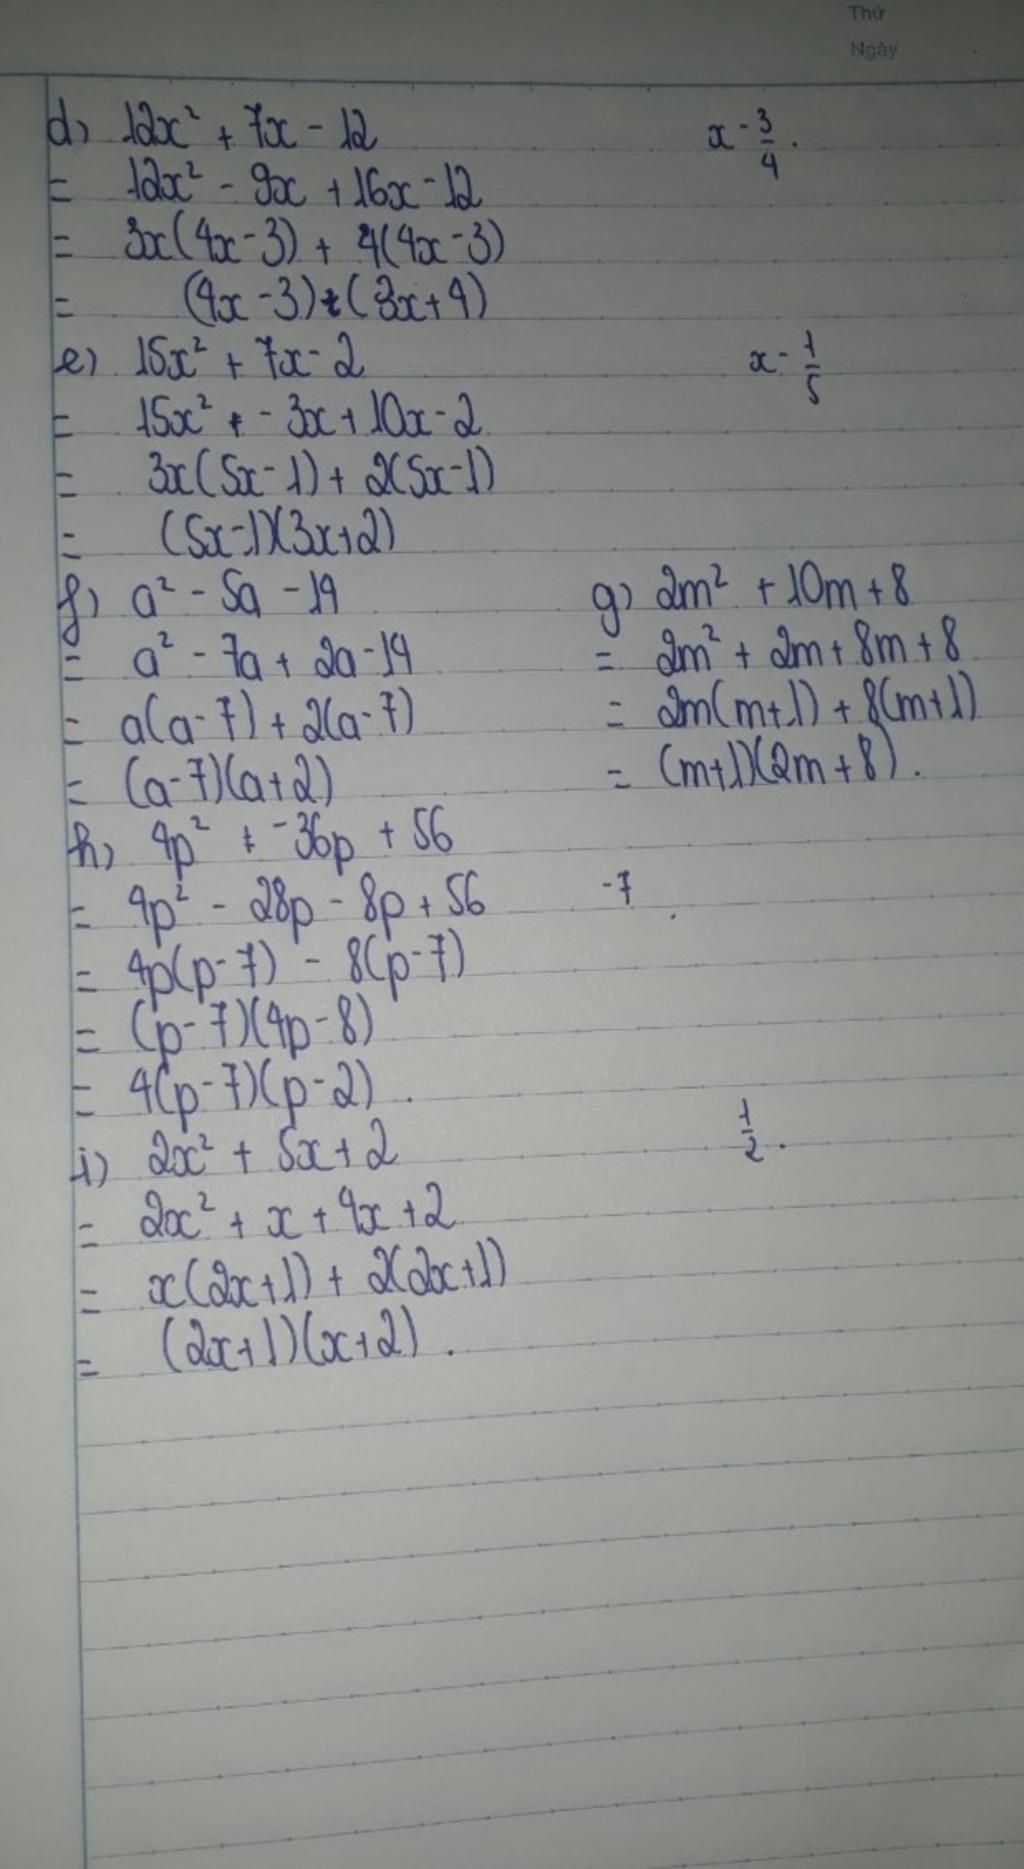 Thứ
Ngày
d) 12x² + 7x - 12
x - 3/4 .
= 12x² - 9x + 16x - 12
= 3x(4x - 3) + 4(4x - 3)
= (4x - 3)(3x + 4)
e) 15x² + 7x - 2
x - 1/5
= 15x² - 3x + 10x - 2
= 3x(5x - 1) + 2(5x - 1)
= (5x - 1)(3x + 2)
f) a² - 5a - 14
= a² - 7a + 2a - 14
= a(a - 7) + 2(a - 7)
= (a - 7)(a + 2)
g) 2m² + 10m + 8
= 2m² + 2m + 8m + 8
= 2m(m + 1) + 8(m + 1)
= (m + 1)(2m + 8) .
h) 4p² + -36p + 56
= 4p² - 28p - 8p + 56
-7
= 4p(p - 7) - 8(p - 7)
= (p - 7)(4p - 8)
= 4(p - 7)(p - 2) .
i) 2x² + 5x + 2
1/2 .
= 2x² + x + 4x + 2
= x(2x + 1) + 2(2x + 1)
= (2x + 1)(x + 2) .